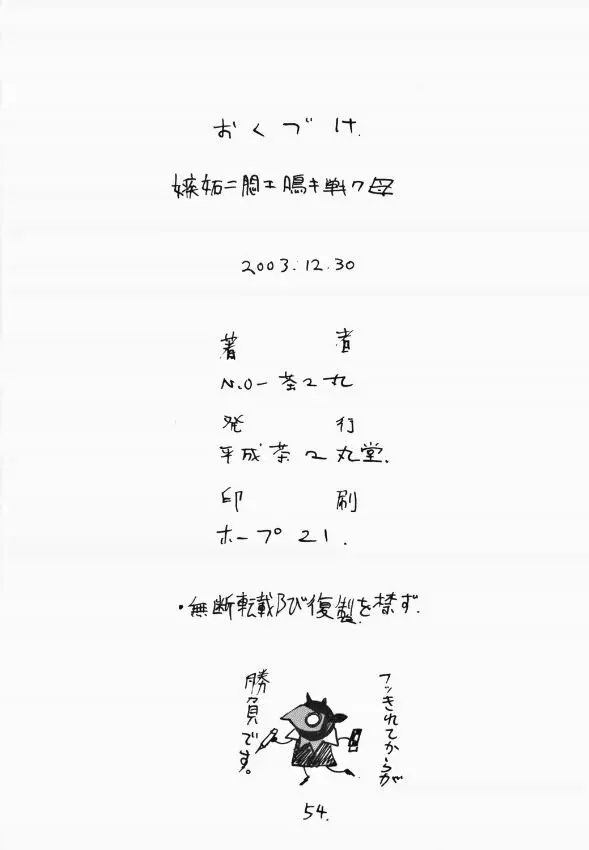 おくづけ.
嫉妬ニ悶エ鳴キ戦フ母
2003.12.30
著者
N.O-茶2丸
発行
平成茶2丸堂.
印刷
ホープ21.
・無断転載及び復製を禁ず.
フッきれてからが
勝負です。
54.